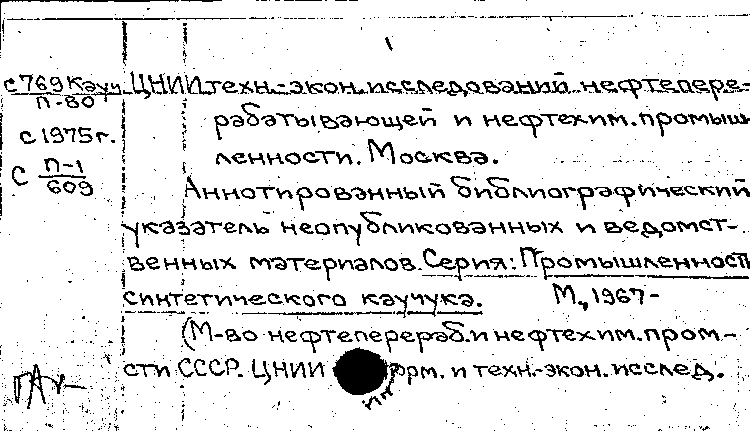 с 769 Кауч. ЦНИИ техн.-экон. исследований нефтепере-
П-80
рабатывающей и нефтехим. промыш
с 1975 г.
ленности. Москва.
С П-1
609
Аннотированный библиографический
указатель неопубликованных и ведомст-
венных материалов. Серия: Промышленность
синтетического каучука. М., 1967-
(М-во нефтеперераб. и нефтехим. пром-
сти СССР. ЦНИИ и техн.-экон. исслед.